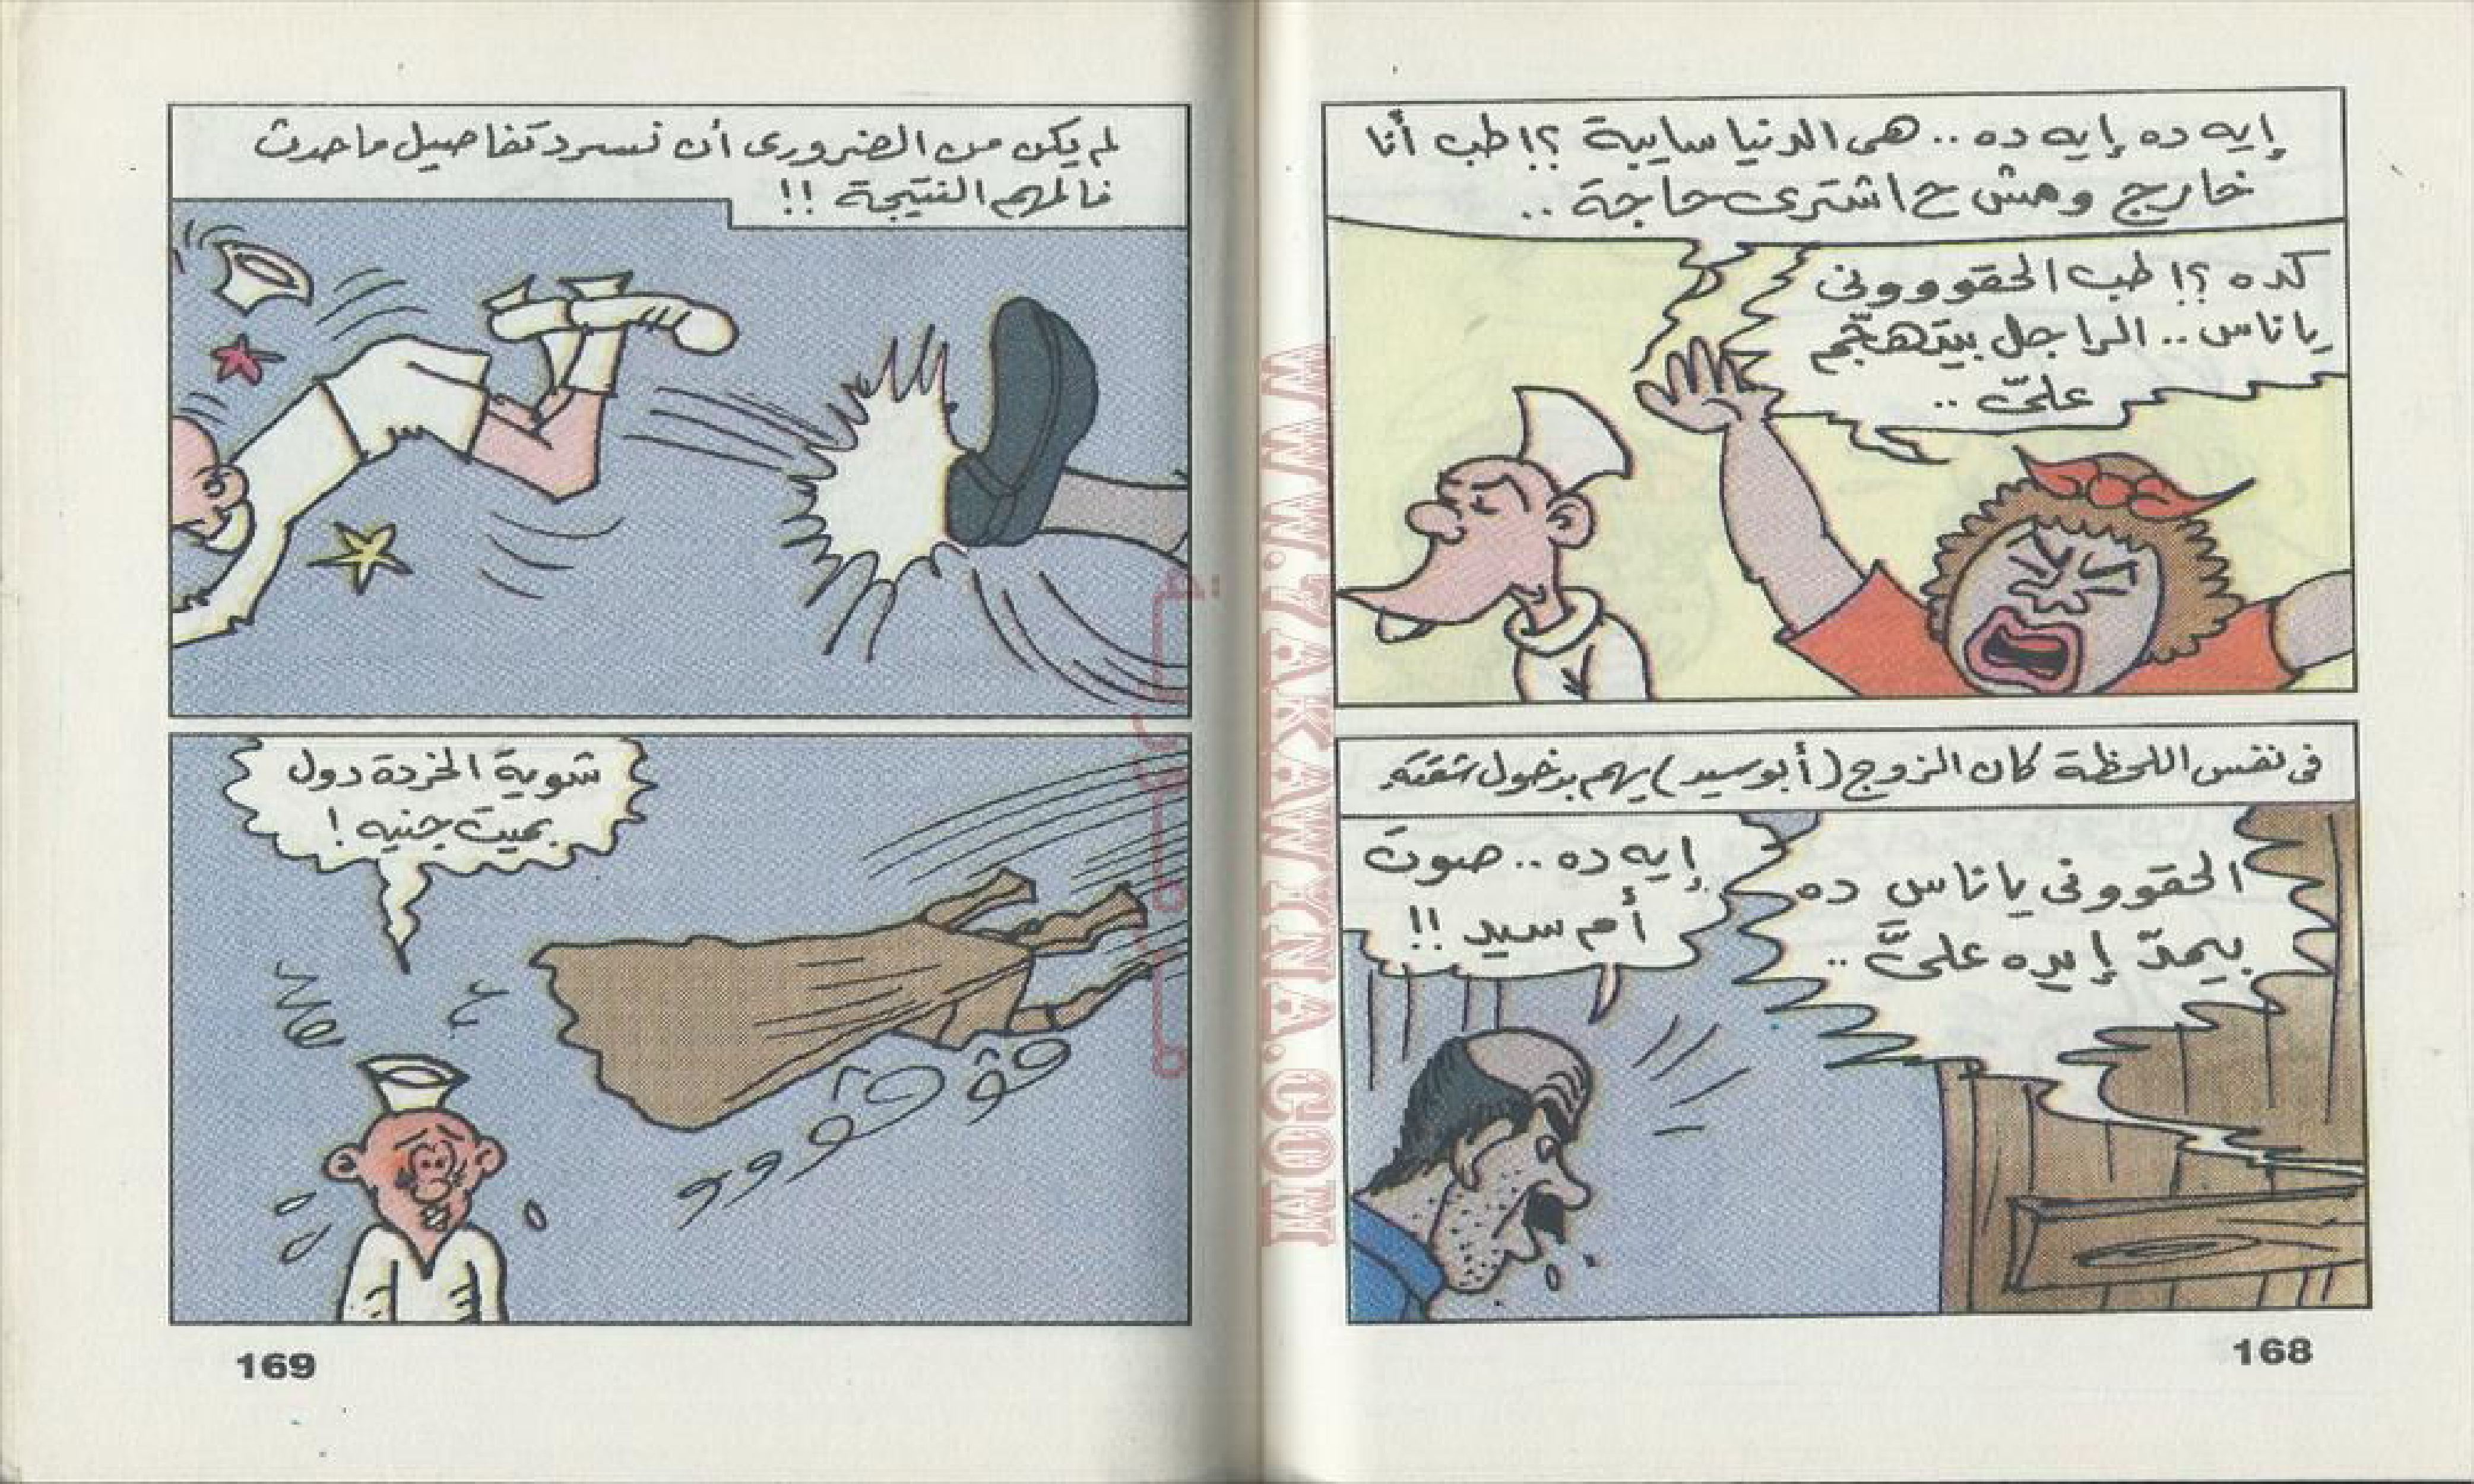 إيه ده إيه ده .. هى الدنيا سايبة ؟! طب أنا
خارج ومش ح اشترى حاجة ..
كده ؟! طب الحقووونى
يا ناس .. الراجل بيتهجّم
علىّ ..
فى نفس اللحظة كان الزوج (أبو سيد) يهم بدخول شقته
الحقوونى يا ناس ده
بيمدّ إيده علىَّ ..
إيه ده .. صوت
أم سيد !!
168
لم يكن من الضرورى أن نسرد تفاصيل ما حدث
فالمهم النتيجة !!
شوية الخردة دول
بميت جنيه !
169
WWW.ZAKAWANA.COM